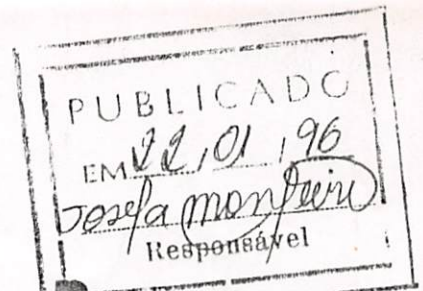 PUBLICADO
EM 22, 01, 96
Josefa Monteiro
Responsável